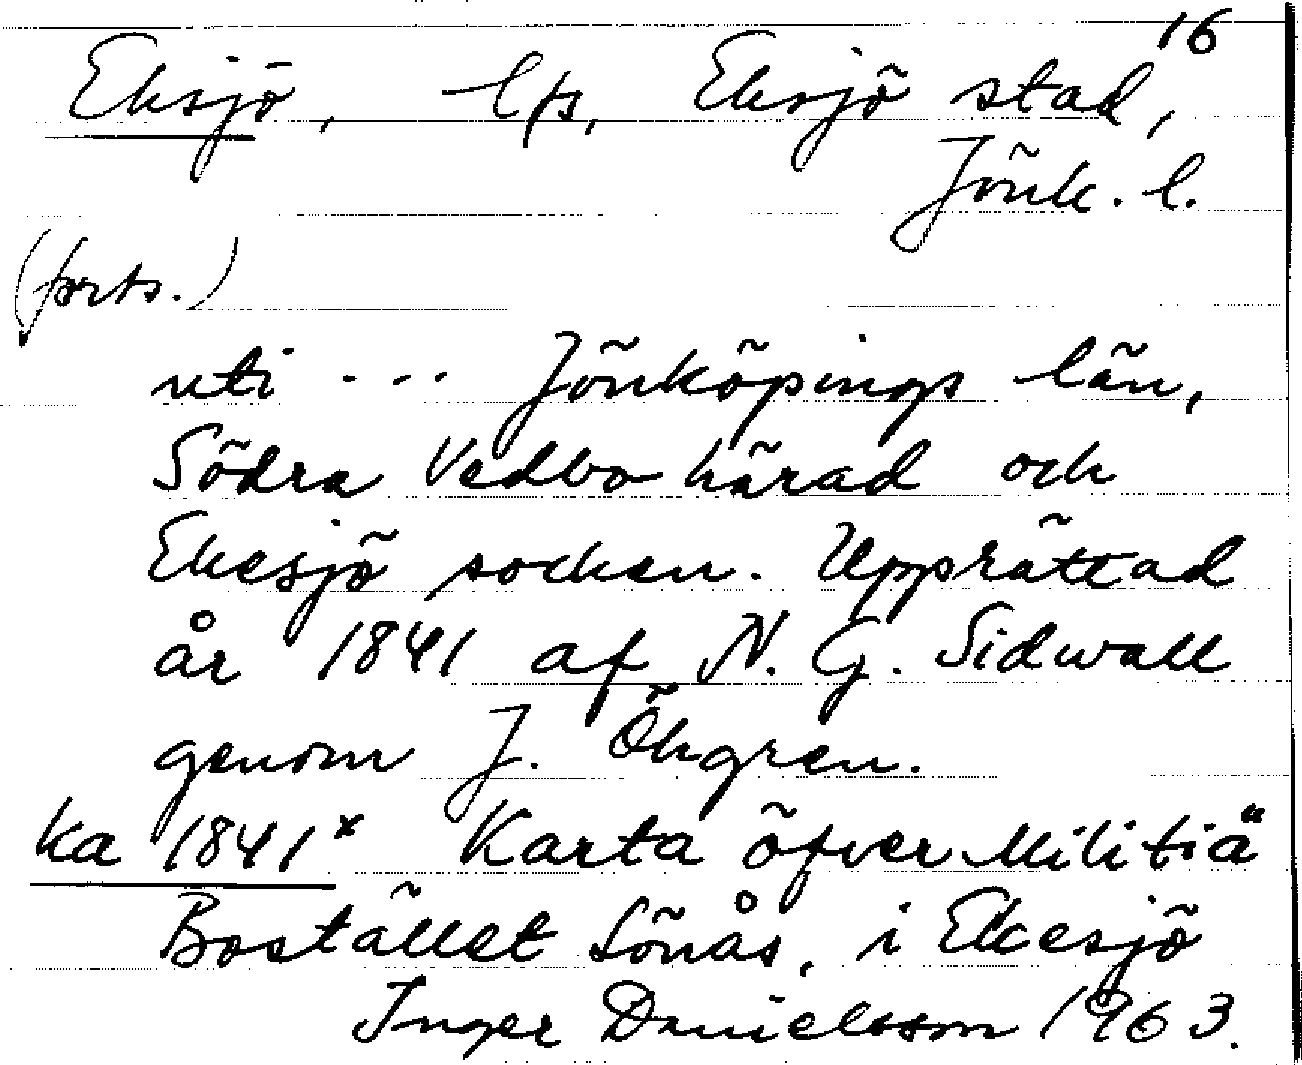 16
Eksjö, lfs, Eksjö stad,
Jönk. l.
(forts.)
uti ... Jönköpings län,
Södra Vedbo härad och
Ekesjö socken. Upprättad
år 1841 af N. G. Sidwall
genom J. Öhgren.
ka 1841x Karta öfver Militiä
Bostället Sönås, i Ekesjö
Inger Danielsson 1963.